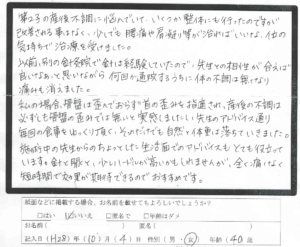 第2子の産後不調に悩んでいて、いくつか整体にも行ったのですが
改善される事はなく、少しでも腰痛や肩凝り等が治ればいいな、位の
気持ちで治療を受けました。
以前、別の鍼灸院で鍼は経験していたので、先生との相性が合えば
良いなあと思いながら何回か通院するうちに体の不調は無くなり
痛みも消えました。
私の場合、骨盤は歪んでおらず首の歪みを指摘され、産後の不調は
必ずしも骨盤の歪みでは無いと実感しました。先生のアドバイス通り
毎回の食事を出てくり頂く、それだけでも自然と体重は落ちていきました。
施術中の先生からのちょっとした生活面でのアドバイスもとても役立って
います。鍼と聞くと少しハードルが高いかもしれませんが、全く痛くなく
短時間で効果が期待できるのでおすすめです。
紙面などに掲載する場合、お名前を載せてもよろしいでしょうか?
□はい ☑いいえ □匿名で □年齢はダメ
お名前( ) 匿名( )
記入日(H28)年(10)月(4)日 性別( )男・女 年齢(40)歳